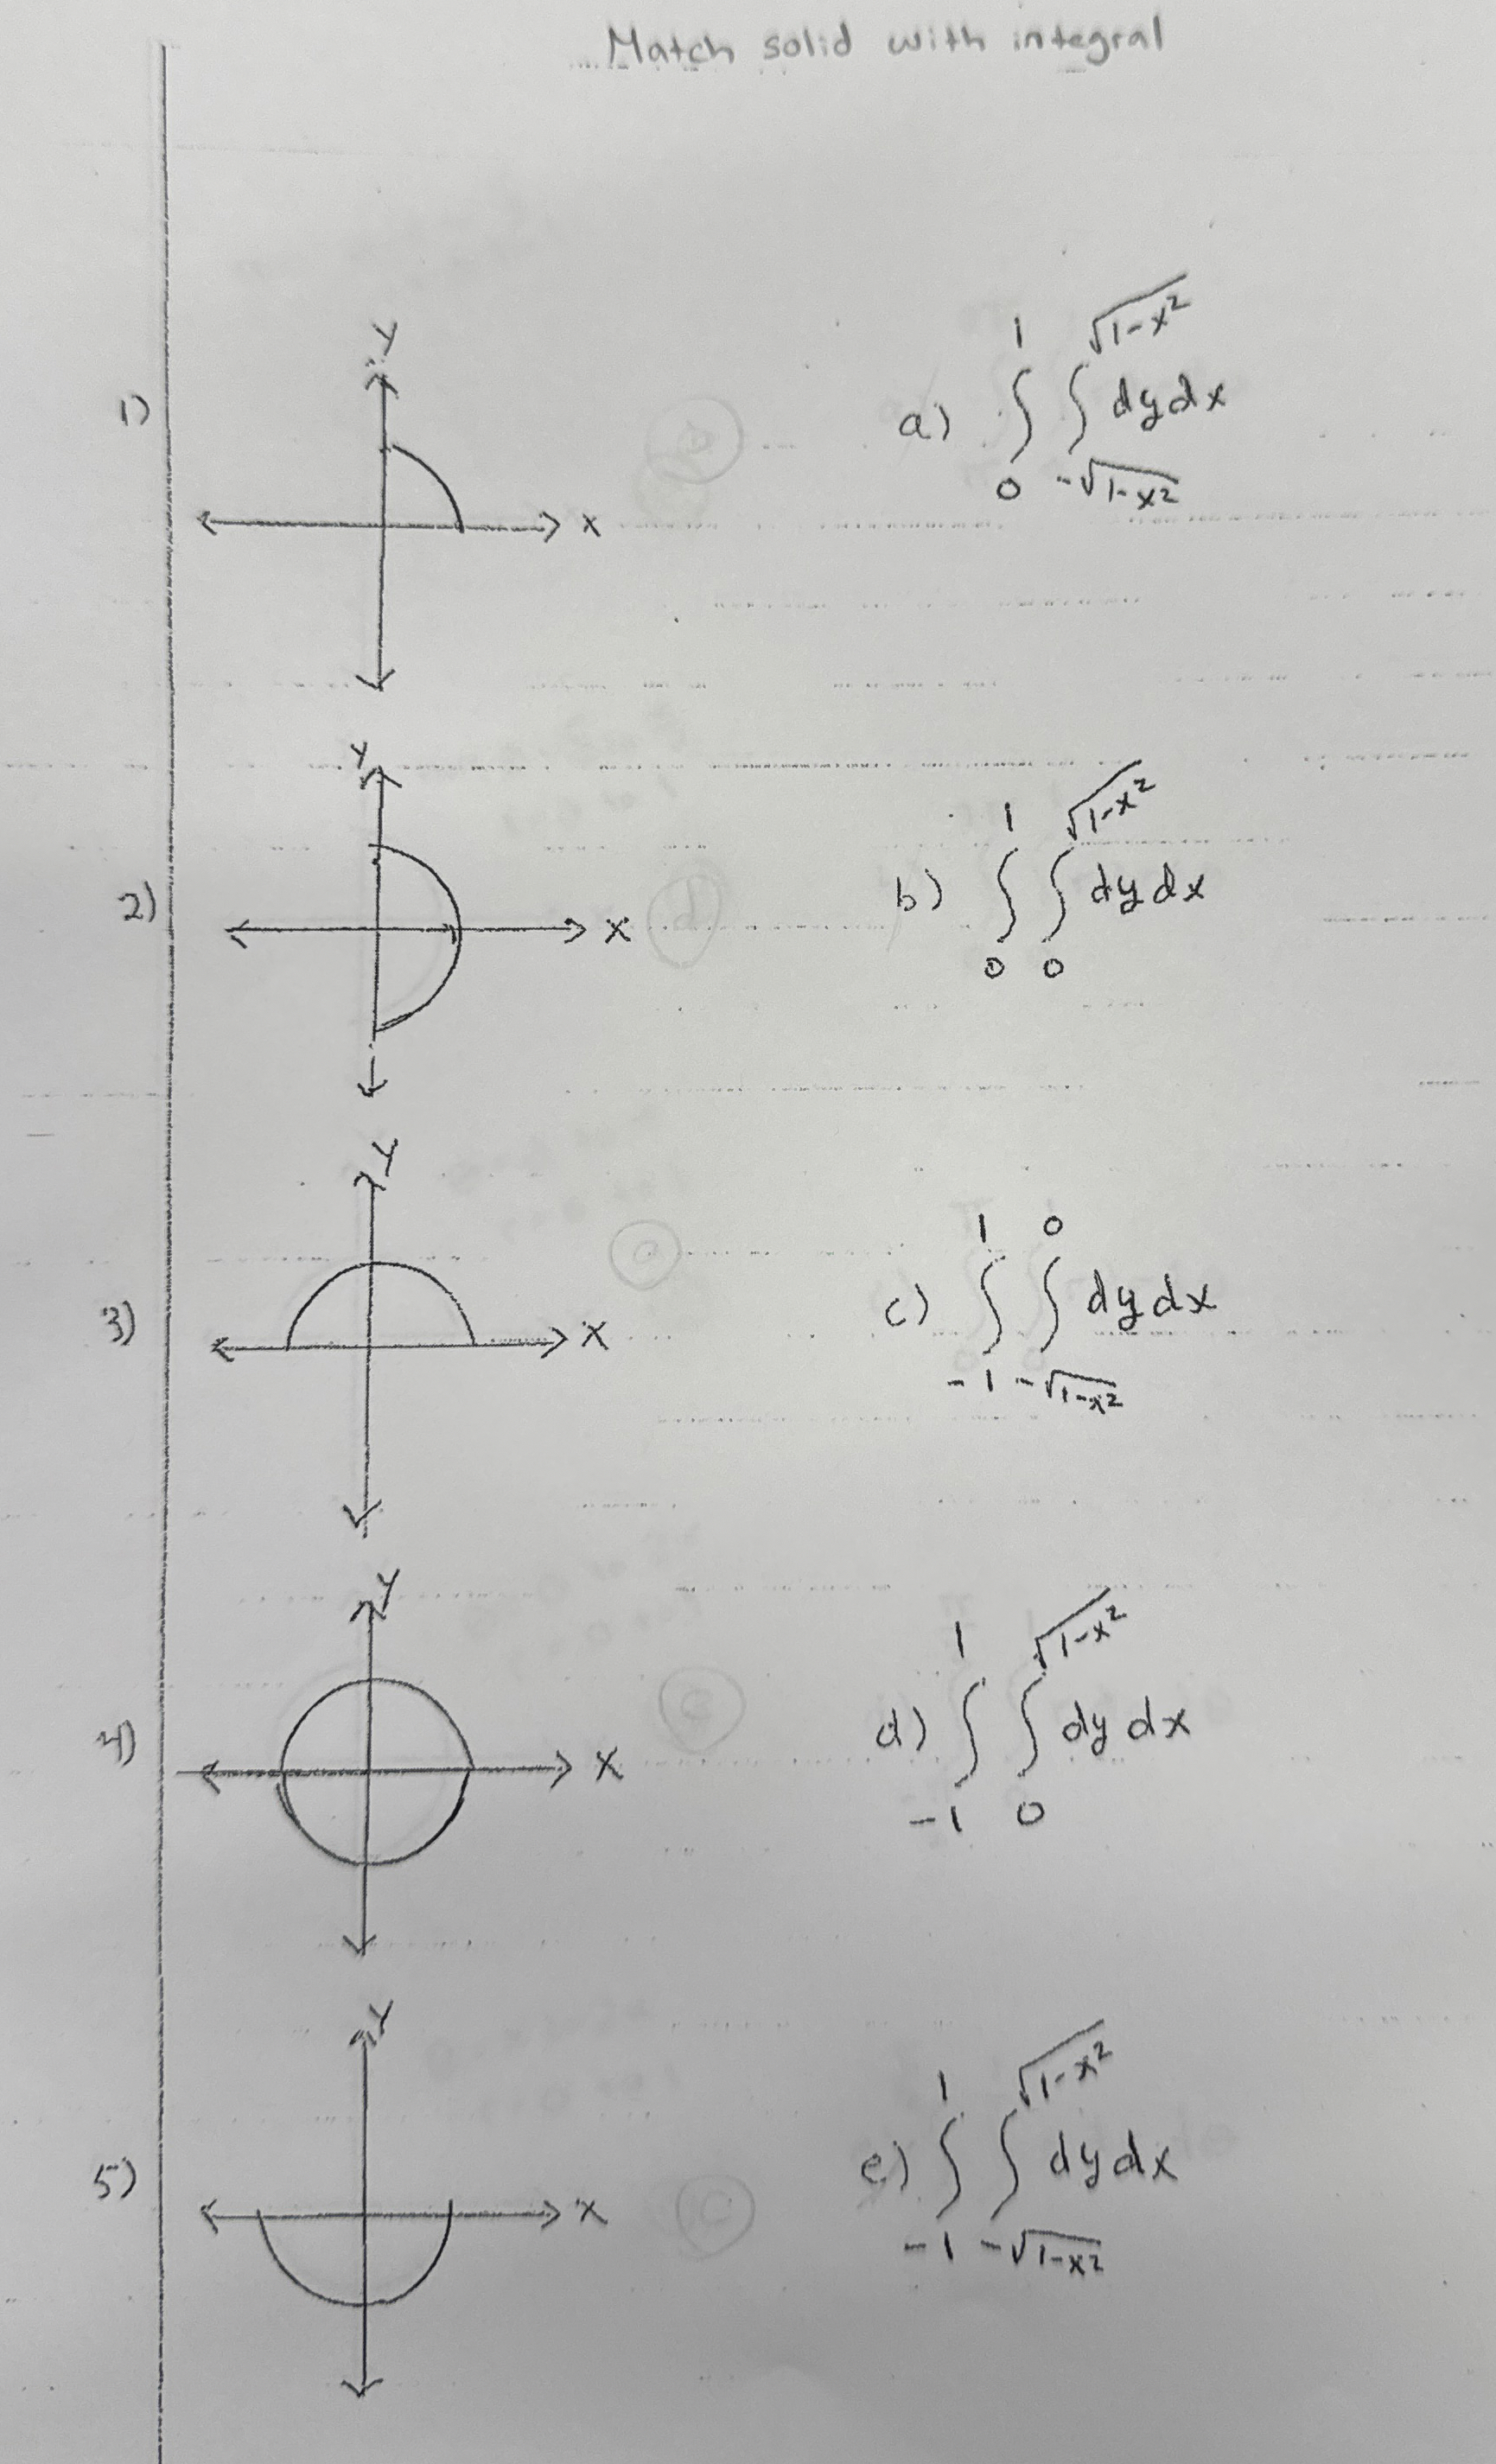 Match solid with integral
y
1)
x
a) ∫_0^1 ∫_{-√(1-x²)}^{√(1-x²)} dy dx
y
2)
x
b) ∫_0^1 ∫_0^{√(1-x²)} dy dx
y
3)
x
c) ∫_{-1}^1 ∫_{-√(1-x²)}^0 dy dx
y
4)
x
d) ∫_{-1}^1 ∫_0^{√(1-x²)} dy dx
y
5)
x
e) ∫_{-1}^1 ∫_{-√(1-x²)}^{√(1-x²)} dy dx